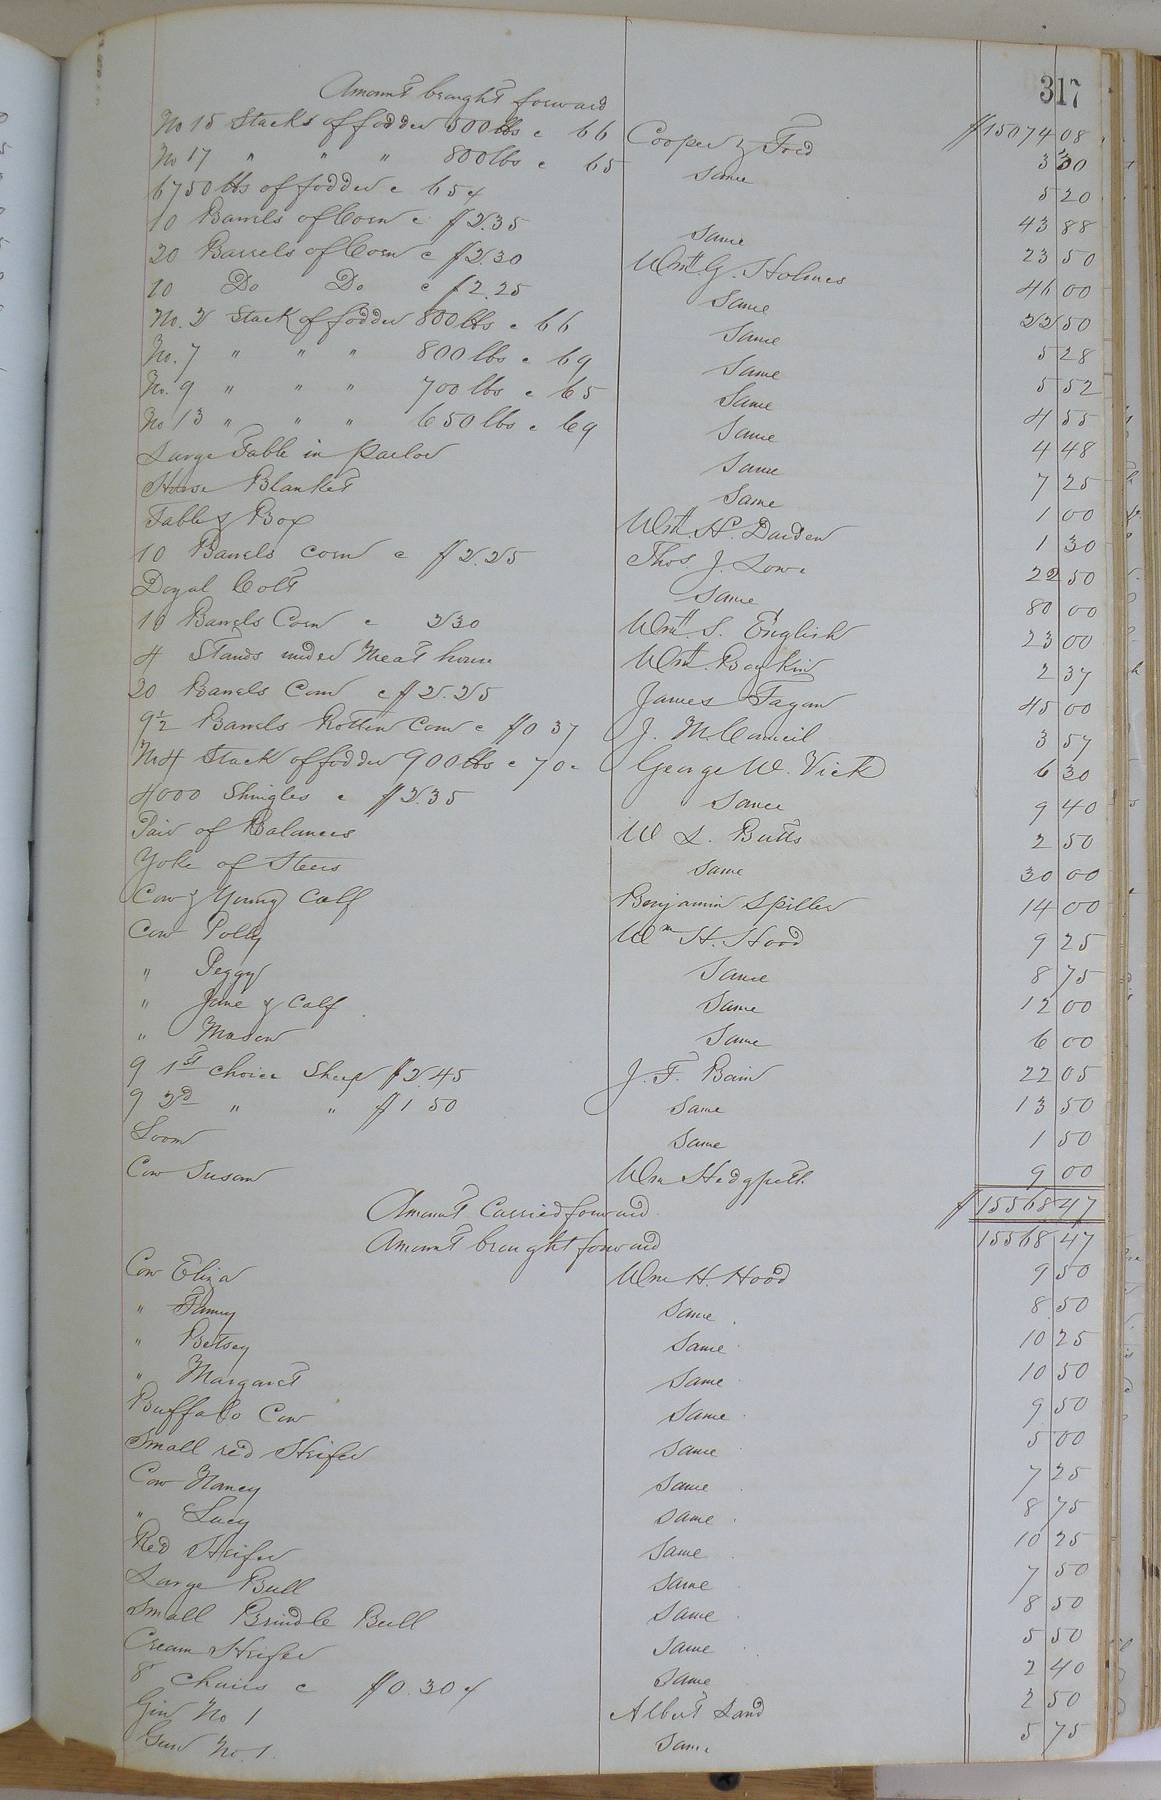 317
Amount brought forward $15074 08
No 15 Stacks of fodder 500 lbs @ 66 Cooper & Fred 3 30
No 17 " " " 800 lbs @ 65 Same 5 20
6750 lbs of fodder @ 65 ¢ Same 43 88
10 Barrels of Corn @ $2.35 Wm. G. Holmes 23 50
20 Barrels of Corn @ $2.30 Same 46 00
10 Do Do @ $2.25 Same 22 50
No. 2 Stack of fodder 800 lbs @ 66 Same 5 28
No. 7 " " " 800 lbs @ 69 Same 5 52
No. 9 " " " 700 lbs @ 65 Same 4 55
No 13 " " " 650 lbs @ 69 Same 4 48
Large Table in Parlor Same 7 25
Horse Blanket Wm. H. Darden 1 00
Table & Box Thos. J. Lowe 1 30
10 Barrels corn @ $2.25 Same 22 50
Colt Wm. S. English 80 00
10 Barrels Corn @ 230 Wm. Boykin 23 00
4 Stands under Meat house James Fagan 2 37
20 Barrels Corn @ $2.25 J. McCouncil 45 00
9½ Barrels Rotten Corn @ $0 37 George W. Vick 3 57
No 4 Stack of fodder 900 lbs @ 70 c Same 6 30
4000 Shingles @ $2.35 W L. Butts 9 40
Pair of Balances Same 2 50
Yoke of Steers Benjamin Spiller 30 00
Cow & Young Calf 14 00
Cow Polly Wm H. Hood 9 25
" Peggy Same 8 75
" Jane & Calf Same 12 00
" Mason Same 6 00
9 1st choice Sheep $2.45 J. F. Bain 22 05
9 2d " " $1 50 Same 13 50
Loom Same 1 50
Cow Susan Wm Hedgpeth 9 00
Amount Carried forward $15568 47
Amount brought forward 15568 47
Cow Eliza Wm H. Hood 9 50
" Fanny Same 8 50
" Betsey Same 10 25
" Margaret Same 10 50
Buffalo Cow Same 9 50
Small red Heifer Same 5 00
Cow Nancy Same 7 25
" Lucy Same 8 75
Red Heifer Same 10 25
Large Bull Same 7 50
Small Brindle Bull Same 8 50
Cream Heifer Same 5 50
8 Chairs @ $0.30 ¢ Same 2 40
Gin No 1 Albert Land 2 50
Gun No. 1. Same 5 75